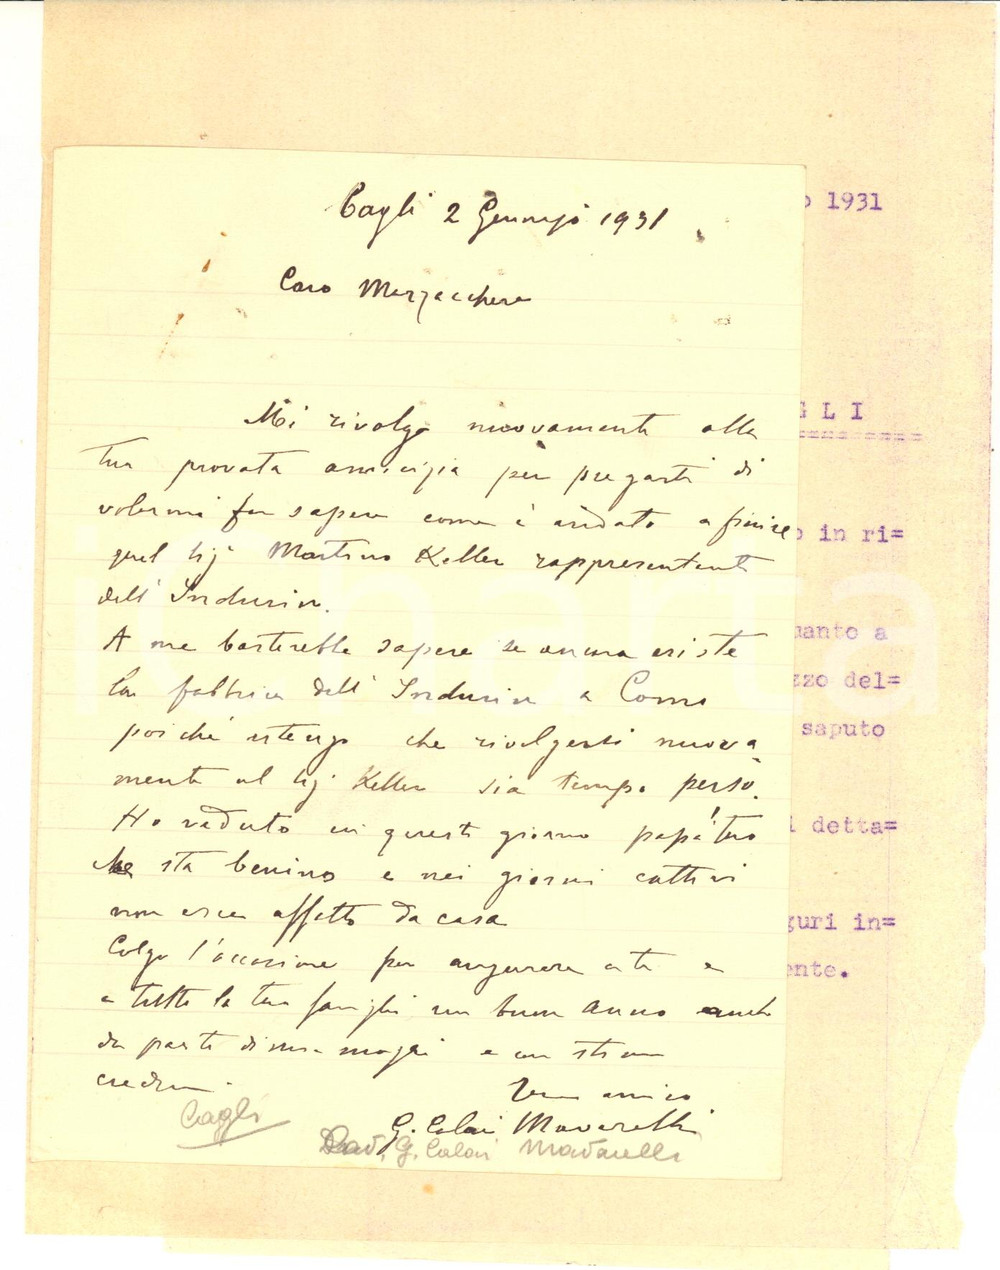 Cagli 2 Gennajo 1931
Caro Mazzacchera
Mi rivolgo nuovamente alla
tua provata amicizia per pregarti di
volermi far sapere come è andato a finire
quel Sig Martino Keller rappresentante
dell'
A me basterebbe sapere se ancora esiste
la fabbrica dell' a Como
poiché ritengo che rivolgersi nuova
mente al Sig Keller sia tempo perso.
Ho veduto in questi giorno papà tuo
che sta benino e nei giorni cattivi
non esce affatto da casa
Colgo l'occasione per augurare a te e
a tutta la tua famiglia un buon anno anche
da parte di mia moglie e con stima
credimi
Tuo amico
G. Calai Mavarelli
Cagli
G. Calai Mavarelli
o 1931
GLI
o in ri=
uanto a
zzo del=
saputo
i detta=
guri in=
ente.